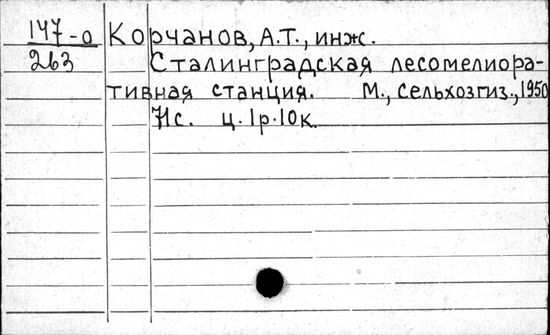 147-о Корчанов, А.Т., инж.
263 Сталинградская лесомелиора-
тивная станция. М., Сельхозгиз., 1950
71с. ц. 1р. 10к.